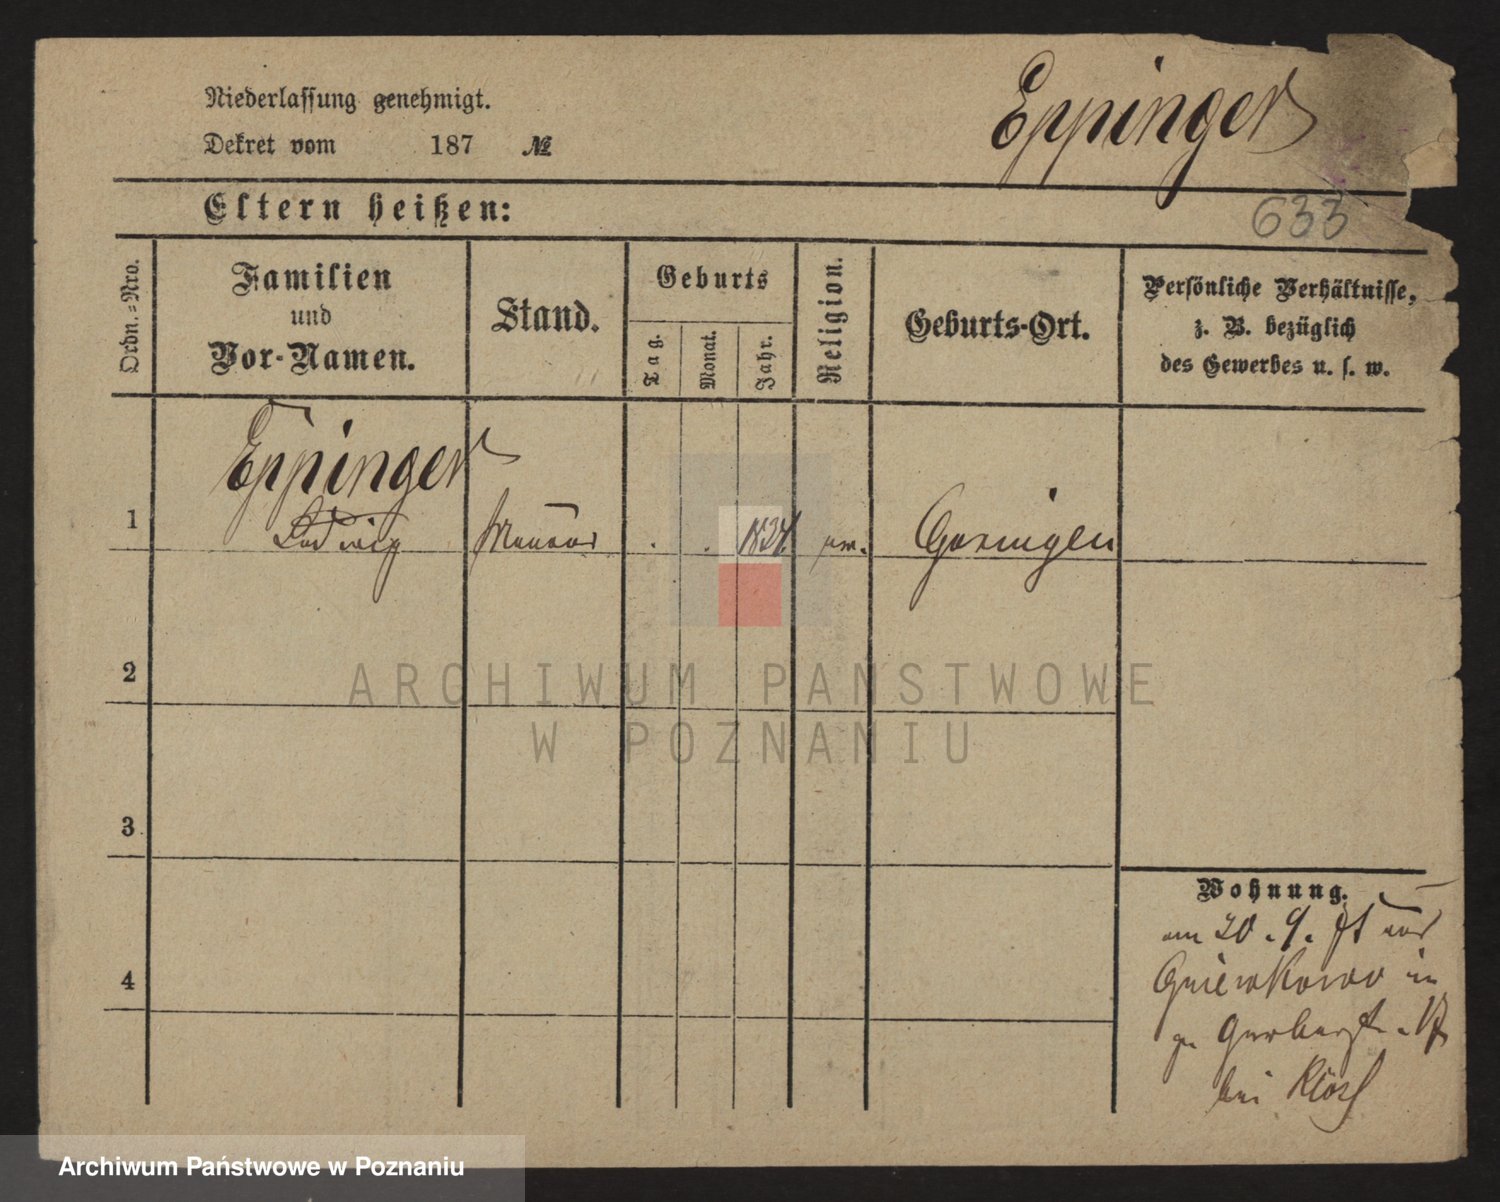 Niederlassung genehmigt.
Eppinger
Dekret vom 187 №
Eltern heißen:
633
Ordn.-Nro.
Familien
und
Vor-Namen.
Stand.
Geburts
Tag.
Monat.
Jahr.
Religion.
Geburts-Ort.
Persönliche Verhältnisse,
z. B. bezüglich
des Gewerbes u. s. w.
Eppinger
1 Ludwig Maurer 1834 ev.
2
ARCHIWUM PAŃSTWOWE
W POZNANIU
3
Wohnung.
am 20. 9. aus
Gniewkowo in
4
zu Gerberst. 17
bei Klose
Archiwum Państwowe w Poznaniu